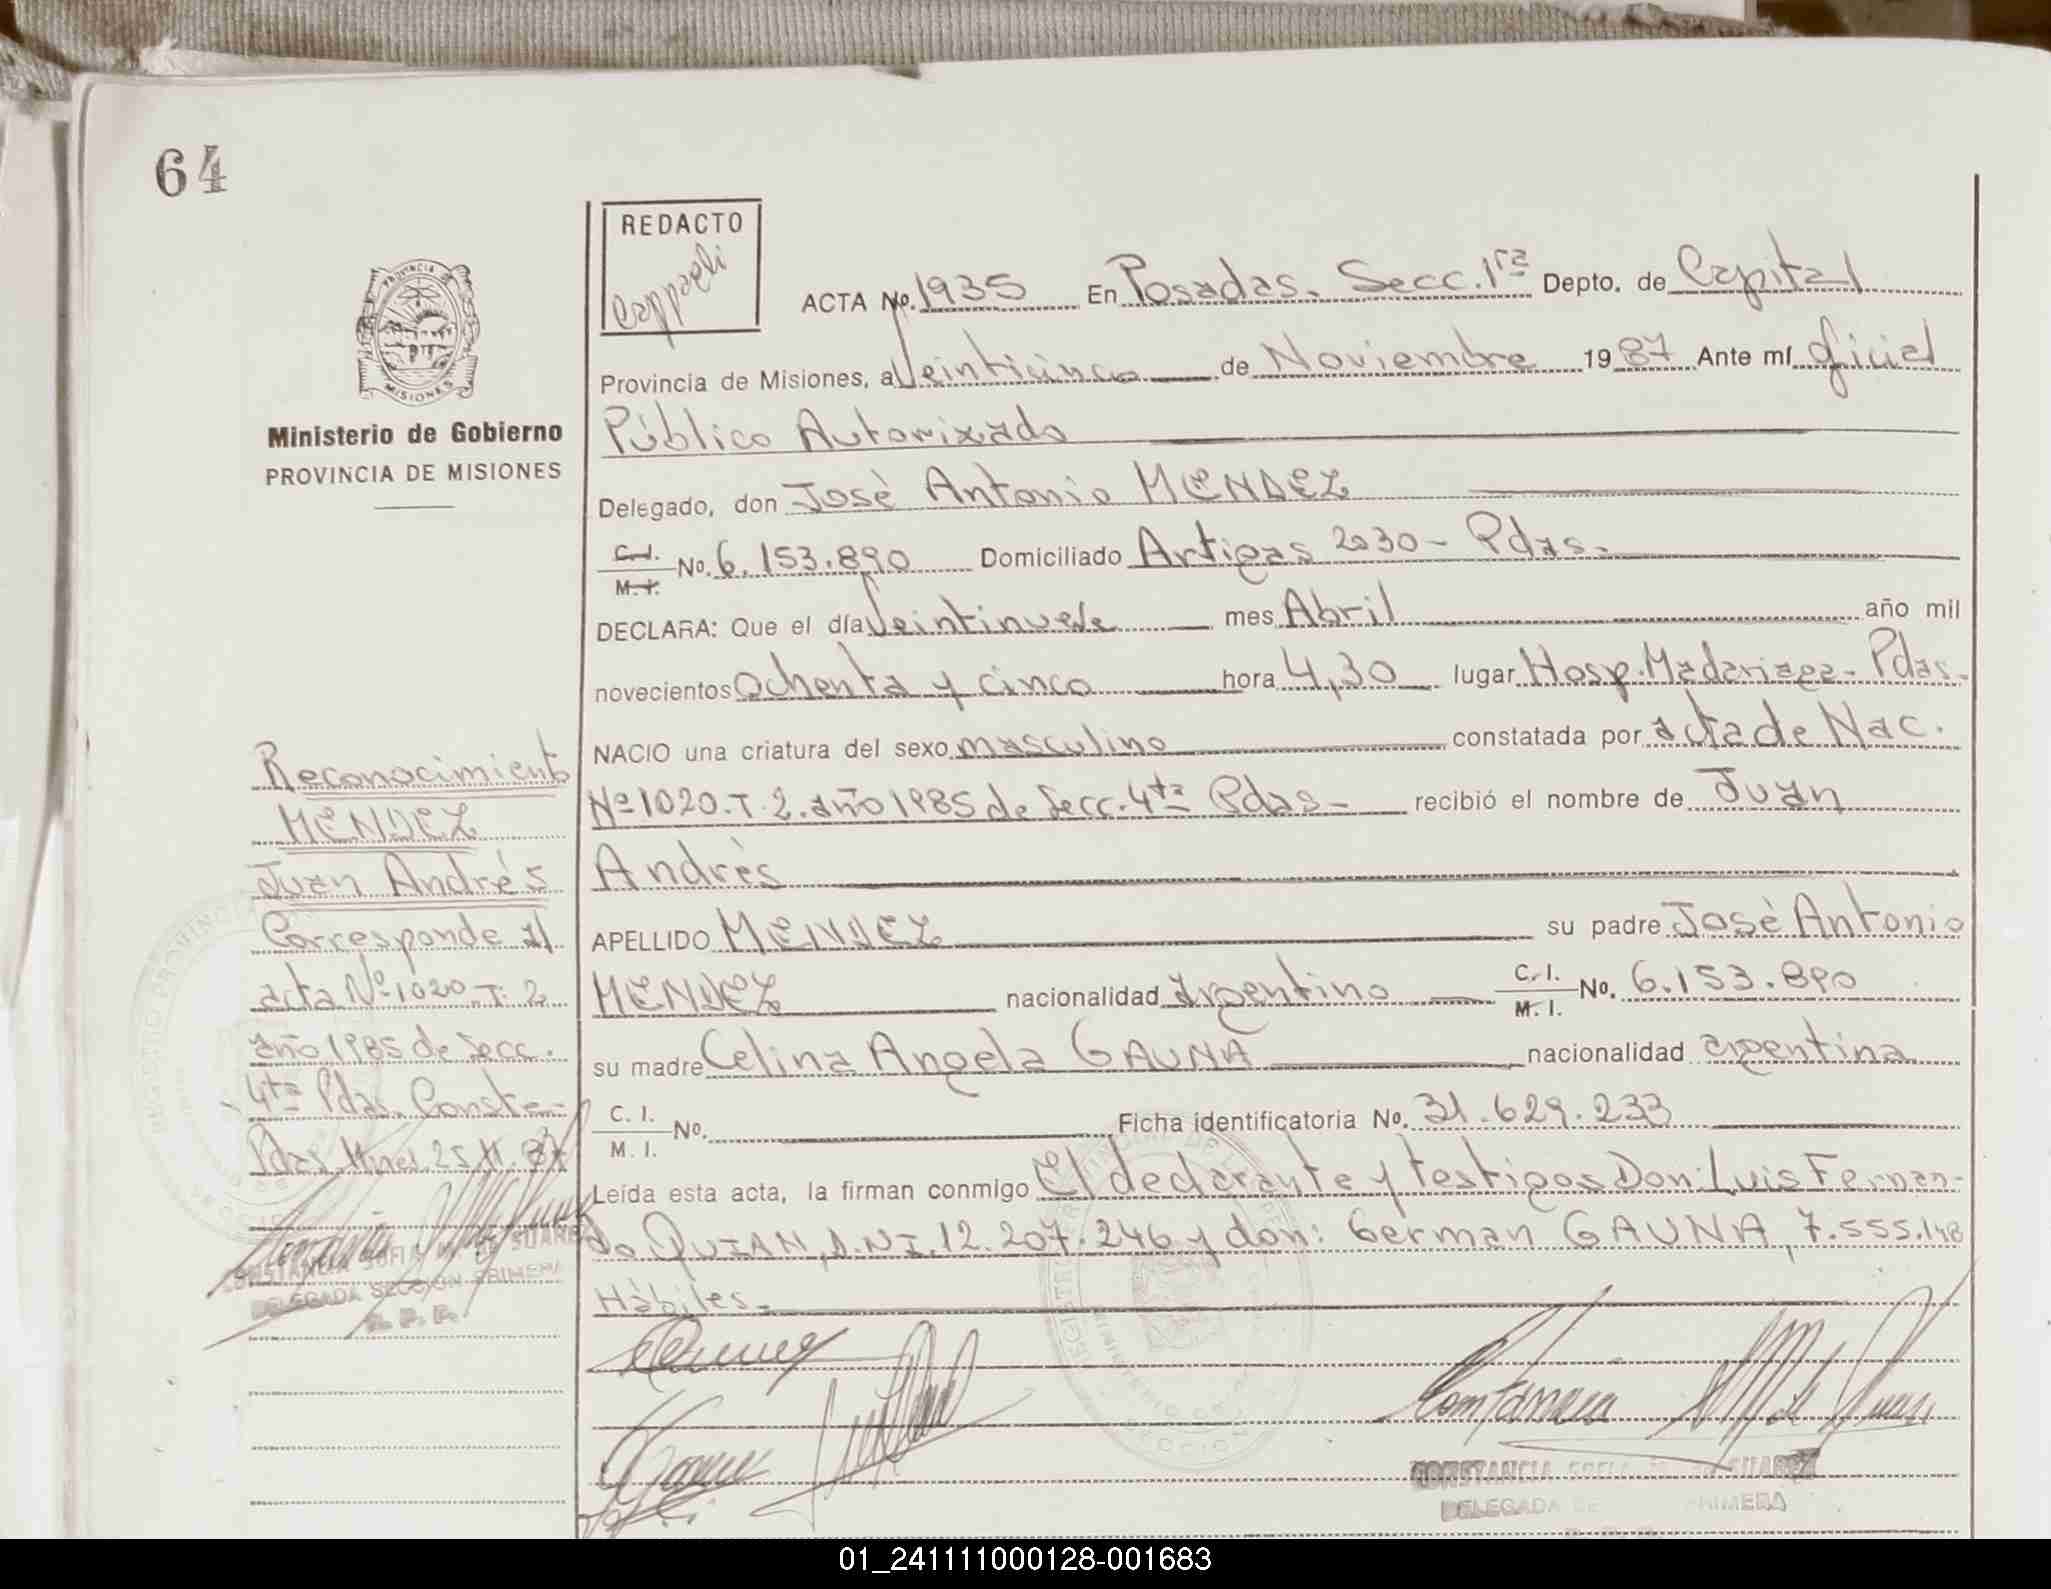 64
REDACTO
Cappeli
ACTA No. 1935 En Posadas. Secc. 1ra Depto. de Capital
Provincia de Misiones, a Veinticinco de Noviembre 1987 Ante mí Oficial
Público Autorizado
Delegado, don José Antonio MENDEZ
C.I. M.I. No. 6.153.890 Domiciliado Artigas 2030 - Pdas.
DECLARA: Que el día Veintinueve mes Abril año mil
novecientos Ochenta y cinco hora 4,30 lugar Hosp. Madariaga - Pdas.
NACIO una criatura del sexo masculino constatada por acta de Nac.
Nº 1020. T. 2. año 1985 de Secc. 4ta Pdas - recibió el nombre de Juan
Andrès
APELLIDO MENDEZ su padre Josè Antonio
MENDEZ nacionalidad argentino C.I. M.I. No. 6.153.890
su madre Celina Angela GAUNA nacionalidad argentina
C. I. M. I. No. Ficha identificatoria No. 31.629.233
Leída esta acta, la firman conmigo El declarante y testigos Don: Luis Fernan-
do QUIAN, D.N.I. 12.207.246 y don: German GAUNA, 7.555.148
Hábiles.
CONSTANCIA SOFIA M. DE SUAREZ
DELEGADA SECCION PRIMERA
PROVINCIA DE
MISIONES
Ministerio de Gobierno
PROVINCIA DE MISIONES
Reconocimiento
MENDEZ
Juan Andrés
Corresponde al
acta Nº 1020. T. 2
año 1985 de Secc.
4ta Pdas. Conste-
Pdas Mnes. 25. XI. 87
CONSTANCIA SOFIA M. DE SUAREZ
DELEGADA SECCION PRIMERA
R. P. P.
01_241111000128-001683